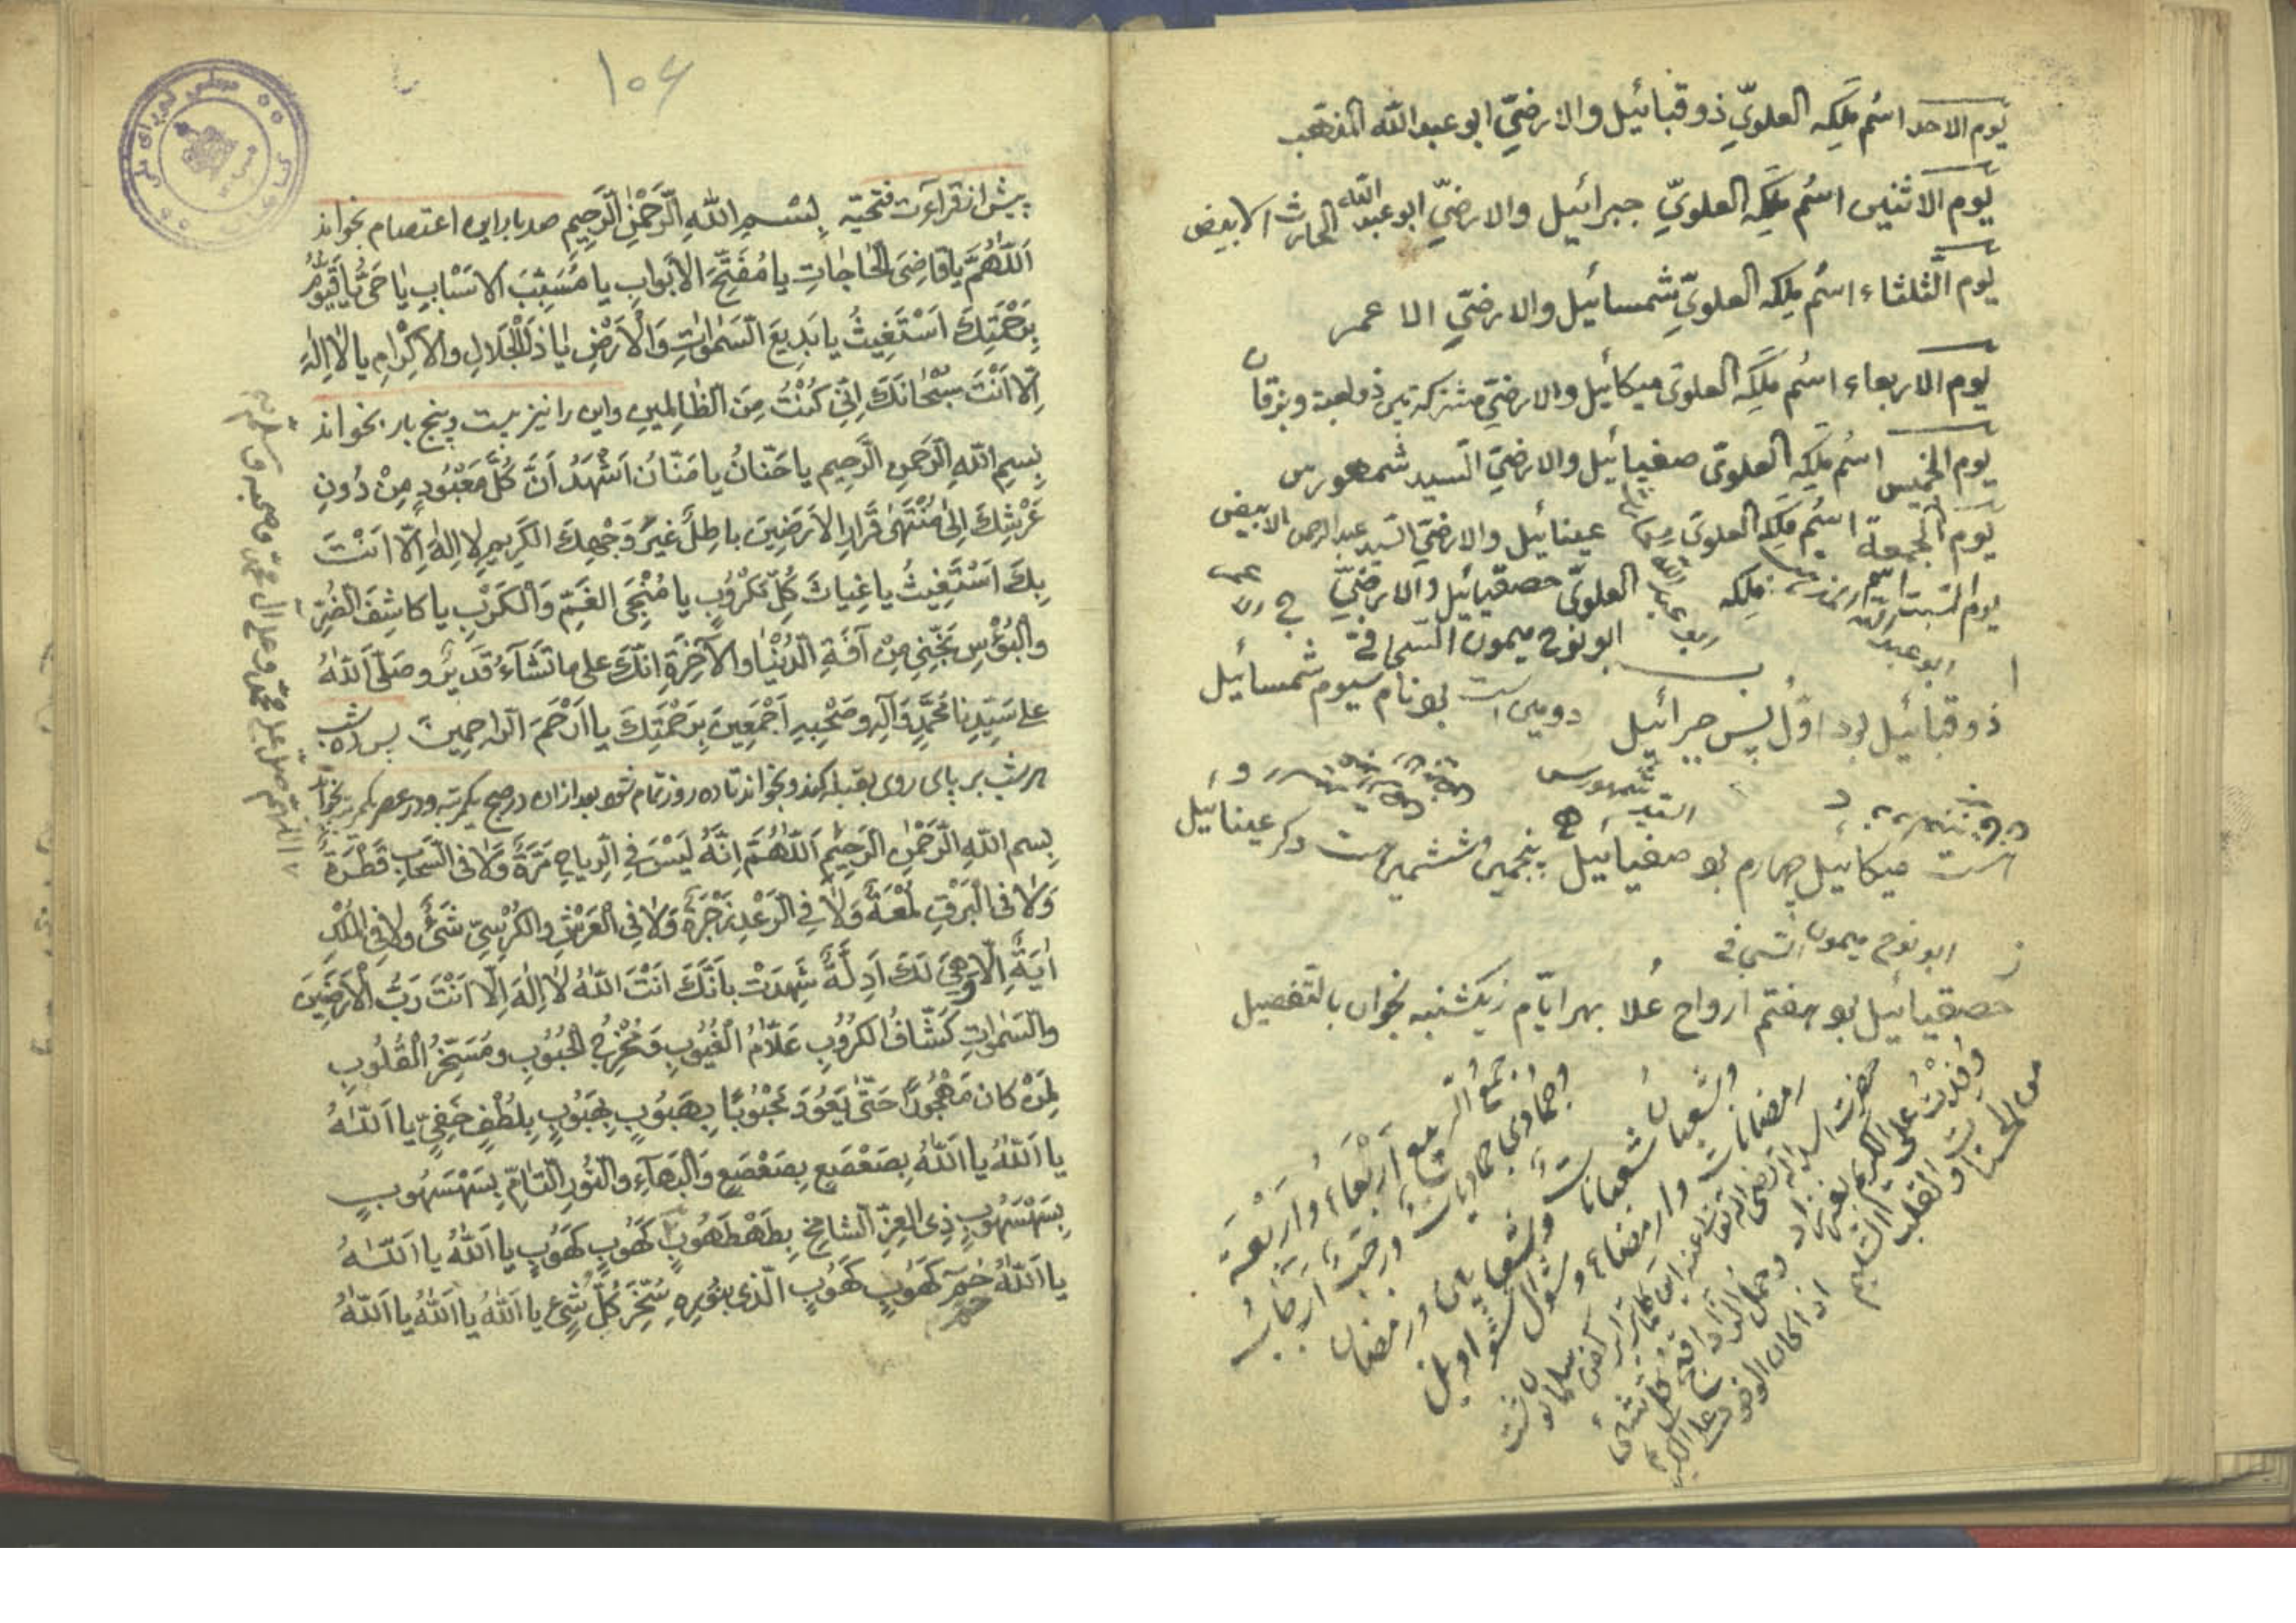 يوم الاحد اسم ملكه العلويّ ذوقبائيل والارضيّ ابو عبد الله المذهب
يوم الاثنين اسم ملكه العلويّ جبرائيل والارضيّ ابو عبد الله الحارث الابيض
يوم الثلثاء اسم ملكه العلويّ شمسائيل والارضيّ الاحمر
يوم الاربعاء اسم ملكه العلوى ميكائيل والارضيّ مشتركة بين ذولعبة وبرقان
يوم الخميس اسم ملكه العلوى صفيائيل والارضيّ السيد شمهورس
يوم الجمعة اسم ملكه العلوى عينائيل والارضيّ السيد عبد الرحمن الابيض
يوم السبت اسم ملكه العلويّ حصقيائيل والارضيّ
ابو عبد الله
ابو نوح ميمون السحافي
ذوقبائيل بود اوّل پس جبرائيل دومين است بو نام سيوم شمسائيل
السيد شمهورس
ميكائيل چهارم بو صفيائيل پنجمين ششمين دكر عينائيل
ابو نوح ميمون السحافي
حصقيائيل بو هفتم ارواح عُلا بهر ايّام ز يكشنبه بخوان بالتفصيل
وجمع الربيع اربعاء واربعة
وجمادى جماديات ورجب ارجاب
وشعبان شعبانات ورمضان
رمضانات وارمضاء وشوال شواويل
حضرت
وفدت على الكريم بغير زاد
من الحسنات والقلب السليم
وحمل الزاد اقبح كل شئ
اذا كان الوفود على الكريم
١٠٤
پيش از قرائت فتحيّه بِسْمِ اللهِ الرَّحْمٰنِ الرَّحِيمِ صد بار اين اعتصام بخواند
اَللّٰهُمَّ يا قاضِىَ الحاجاتِ يا مُفَتِّحَ الأبوابِ يا مُسَبِّبَ الاَسْبابِ يا حَىُّ يا قَيُّومُ
بِرَحْمَتِكَ اَسْتَغِيثُ يا بَدِيعَ السَّمٰواتِ وَالْاَرْضِ يا ذَا الْجَلالِ والاِكْرامِ يا لا اِلٰهَ
اِلّا اَنْتَ سُبْحانَكَ اِنّى كُنْتُ مِنَ الظّالِمِين واين را نيز بيست وپنج بار بخواند
بِسمِ اللهِ الرَّحمنِ الرَّحِيم يا حَنّانُ يا مَنّانُ اَشْهَدُ اَنَّ كُلَّ مَعْبُودٍ مِنْ دُونِ
عَرْشِكَ اِلىٰ مُنْتَهىٰ قَرارِ الاَرَضِينَ باطِلٌ غيرَ وَجْهِكَ الكَرِيمِ لا اِلهَ اِلّا اَنْتَ
بِكَ اَسْتَغِيثُ يا غِياثَ كُلِّ مَكْرُوبٍ يا مُنْجِىَ الغَمِّ وَالكَرْبِ يا كاشِفَ الضُّرِّ
والبُؤْسِ نَجِّنِى مِنْ آفَةِ الدُّنْيا والآخِرَةِ اِنَّكَ على ما تَشآءُ قَدِيرٌ وصَلَّى اللهُ
على سَيِّدِنا مُحَمَّدٍ وَآلِهِ وصَحْبِهِ اَجْمَعِينَ بِرَحْمَتِكَ يا اَرْحَمَ الرّاحِمِينَ پس ده شب
هر شب بر پاى روى بقبله كند وبخواند تا ده روز تمام شود بعد از ان در صبح يكمرتبه ودر عصر يكمرتبه بخواند
بِسم اللهِ الرَّحْمٰنِ الرَّحِيمِ اَللّٰهُمَّ اِنَّهُ لَيْسَ فِى الرِّياحِ مَرَّةٌ وَلا فى السَّحابِ قَطْرَةٌ
وَلا فى البَرْقِ لُمْعَةٌ وَلا فِى الرَّعْدِ زَجْرَةٌ وَلا فِى العَرْشِ والكُرْسِىِّ شَىْءٌ ولا فِى المُلْكِ
اٰيَةٌ اِلّا وَهِىَ لَكَ اَدِلَّةٌ شَهِدَتْ بِاَنَّكَ اَنْتَ اللهُ لا اِلٰهَ اِلّا اَنْتَ رَبُّ الاَرَضِينَ
والسَّمٰواتِ كَشّافُ الكُرُوبِ عَلّامُ الغُيُوبِ ومُخْرِجُ الحُبُوبِ ومُسَخِّرُ القُلُوبِ
لِمَنْ كانَ مَهْجُورًا حَتّىٰ يَعُودَ مَحْبُوبًا بِهَبُوبٍ بِهَبُوبٍ بِلُطْفٍ خَفِىٍّ يا اَللهُ
يا اَللهُ يا اَللهُ بِصَعْصَعٍ بِصَعْصَعٍ وَالبَهآءِ والنُّورِ التّامِّ بِسَهْسَهُوبٍ
بِسَهْسَهُوبٍ ذِى العِزِّ الشامِخِ بِطَهْطَهُوبٍ كَهُوبٍ كَهُوبٍ يا اَللهُ يا اَللهُ
يا اَللهُ حٰمٓ كَهُوبٍ كَهُوبٍ الَّذى بِنُورِهِ سُخِّرَ كُلُّ شَىْءٍ يا اَللهُ يا اَللهُ يا اَللهُ
اللهم صل على محمد وعلى آل محمد وصحبه وسلم